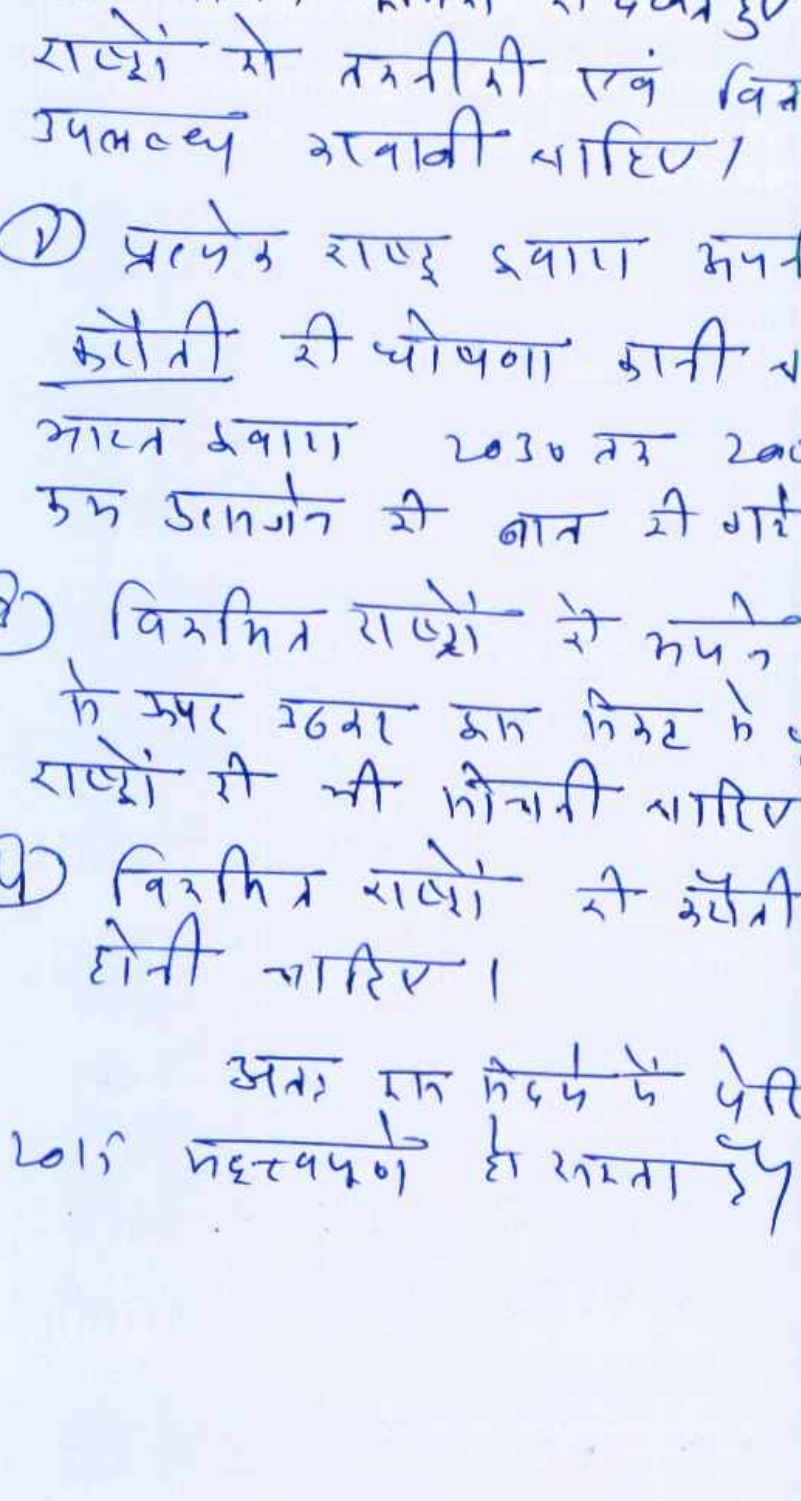 राष्ट्रों को तकनीकी एवं वित्त
उपलब्ध करवानी चाहिए।
प्रत्येक राष्ट्र द्वारा अपनी
कटौती की घोषणा करनी च
भारत द्वारा 2030 तक 200
कम उत्सर्जन की बात की गई
विकसित राष्ट्रों को अपने
से ऊपर उठकर इस संकट में
राष्ट्रों की भी सोचनी चाहिए
विकसित राष्ट्रों की कटौती
होनी चाहिए।
अतः इस संदर्भ में पेरि
2015 महत्त्वपूर्ण हो सकता है